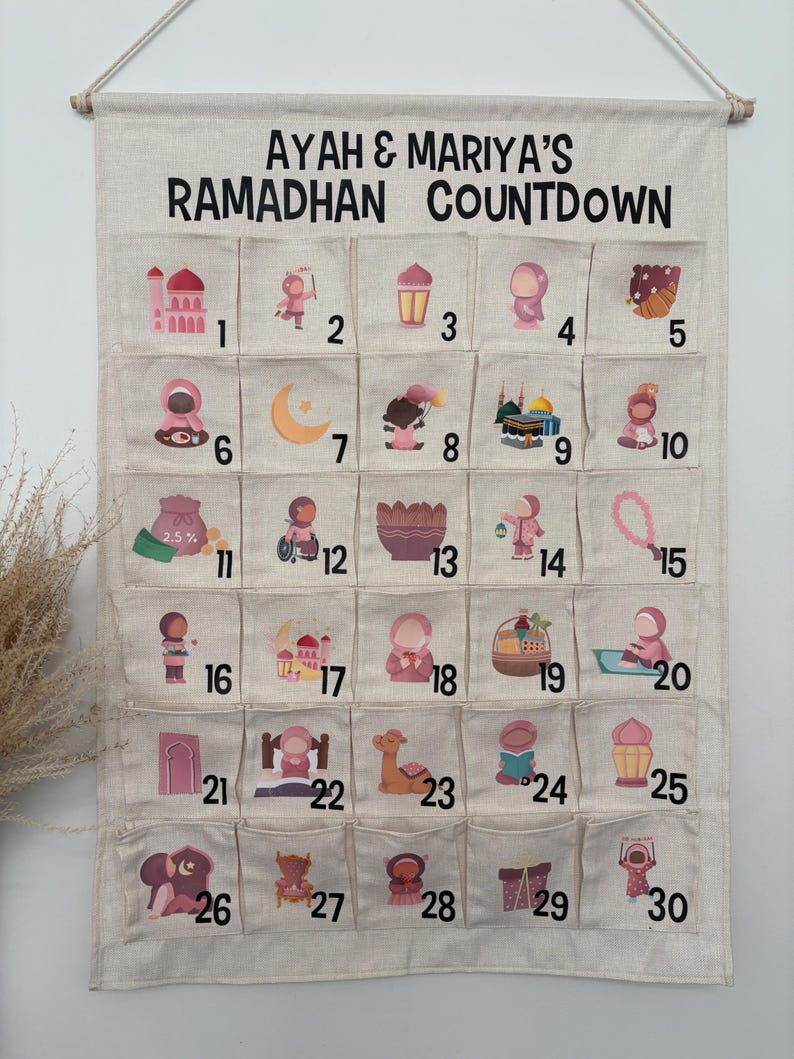 AYAH & MARIYA'S
RAMADHAN COUNTDOWN
RAMADAN
1 2 3 4 5
6 7 8 9 10
2.5 %
11 12 13 14 15
16 17 18 19 20
21 22 23 24 25
26 27 28 29 30